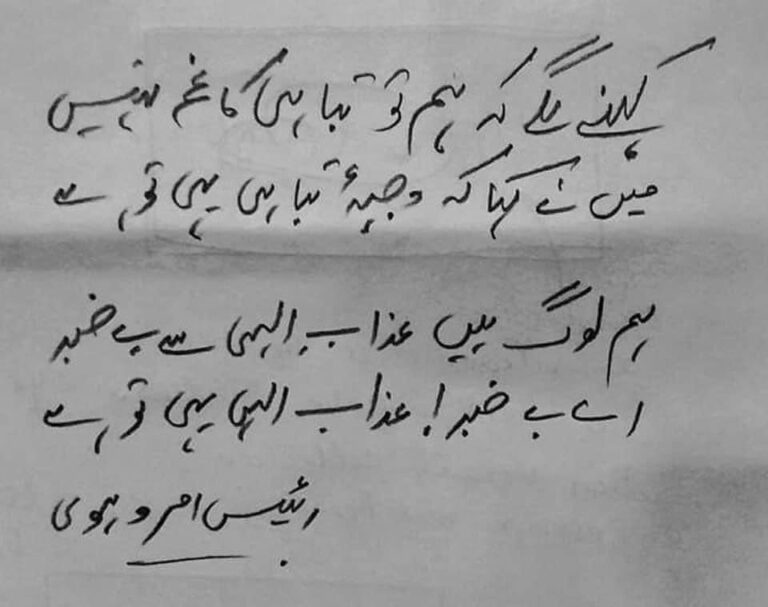 کہنے لگے کہ ہم تو تباہی کا غم نہیں
میں نے کہا کہ وجہِ تباہی یہی تو ہے
ہم لوگ ہیں عذابِ الہی سے بے خبر
اے بے خبر! عذابِ الہی یہی تو ہے
رئیس امروہوی